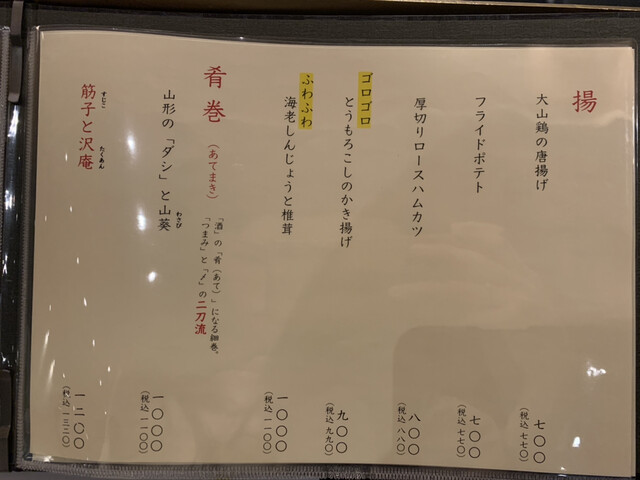 揚
大山鶏の唐揚げ
七〇〇
(税込 七七〇)
フライドポテト
七〇〇
(税込 七七〇)
厚切りロースハムカツ
八〇〇
(税込 八八〇)
ゴロゴロ
とうもろこしのかき揚げ
九〇〇
(税込 九九〇)
ふわふわ
海老しんじょうと椎茸
一〇〇〇
(税込 一一〇〇)
肴巻 (あてまき)
「酒」の「肴(あて)」になる細巻。
「つまみ」と「〆」の二刀流
山形の「ダシ」と山葵
わさび
一〇〇〇
(税込 一一〇〇)
筋子と沢庵
すじこ
たくあん
一二〇〇
(税込 一三二〇)